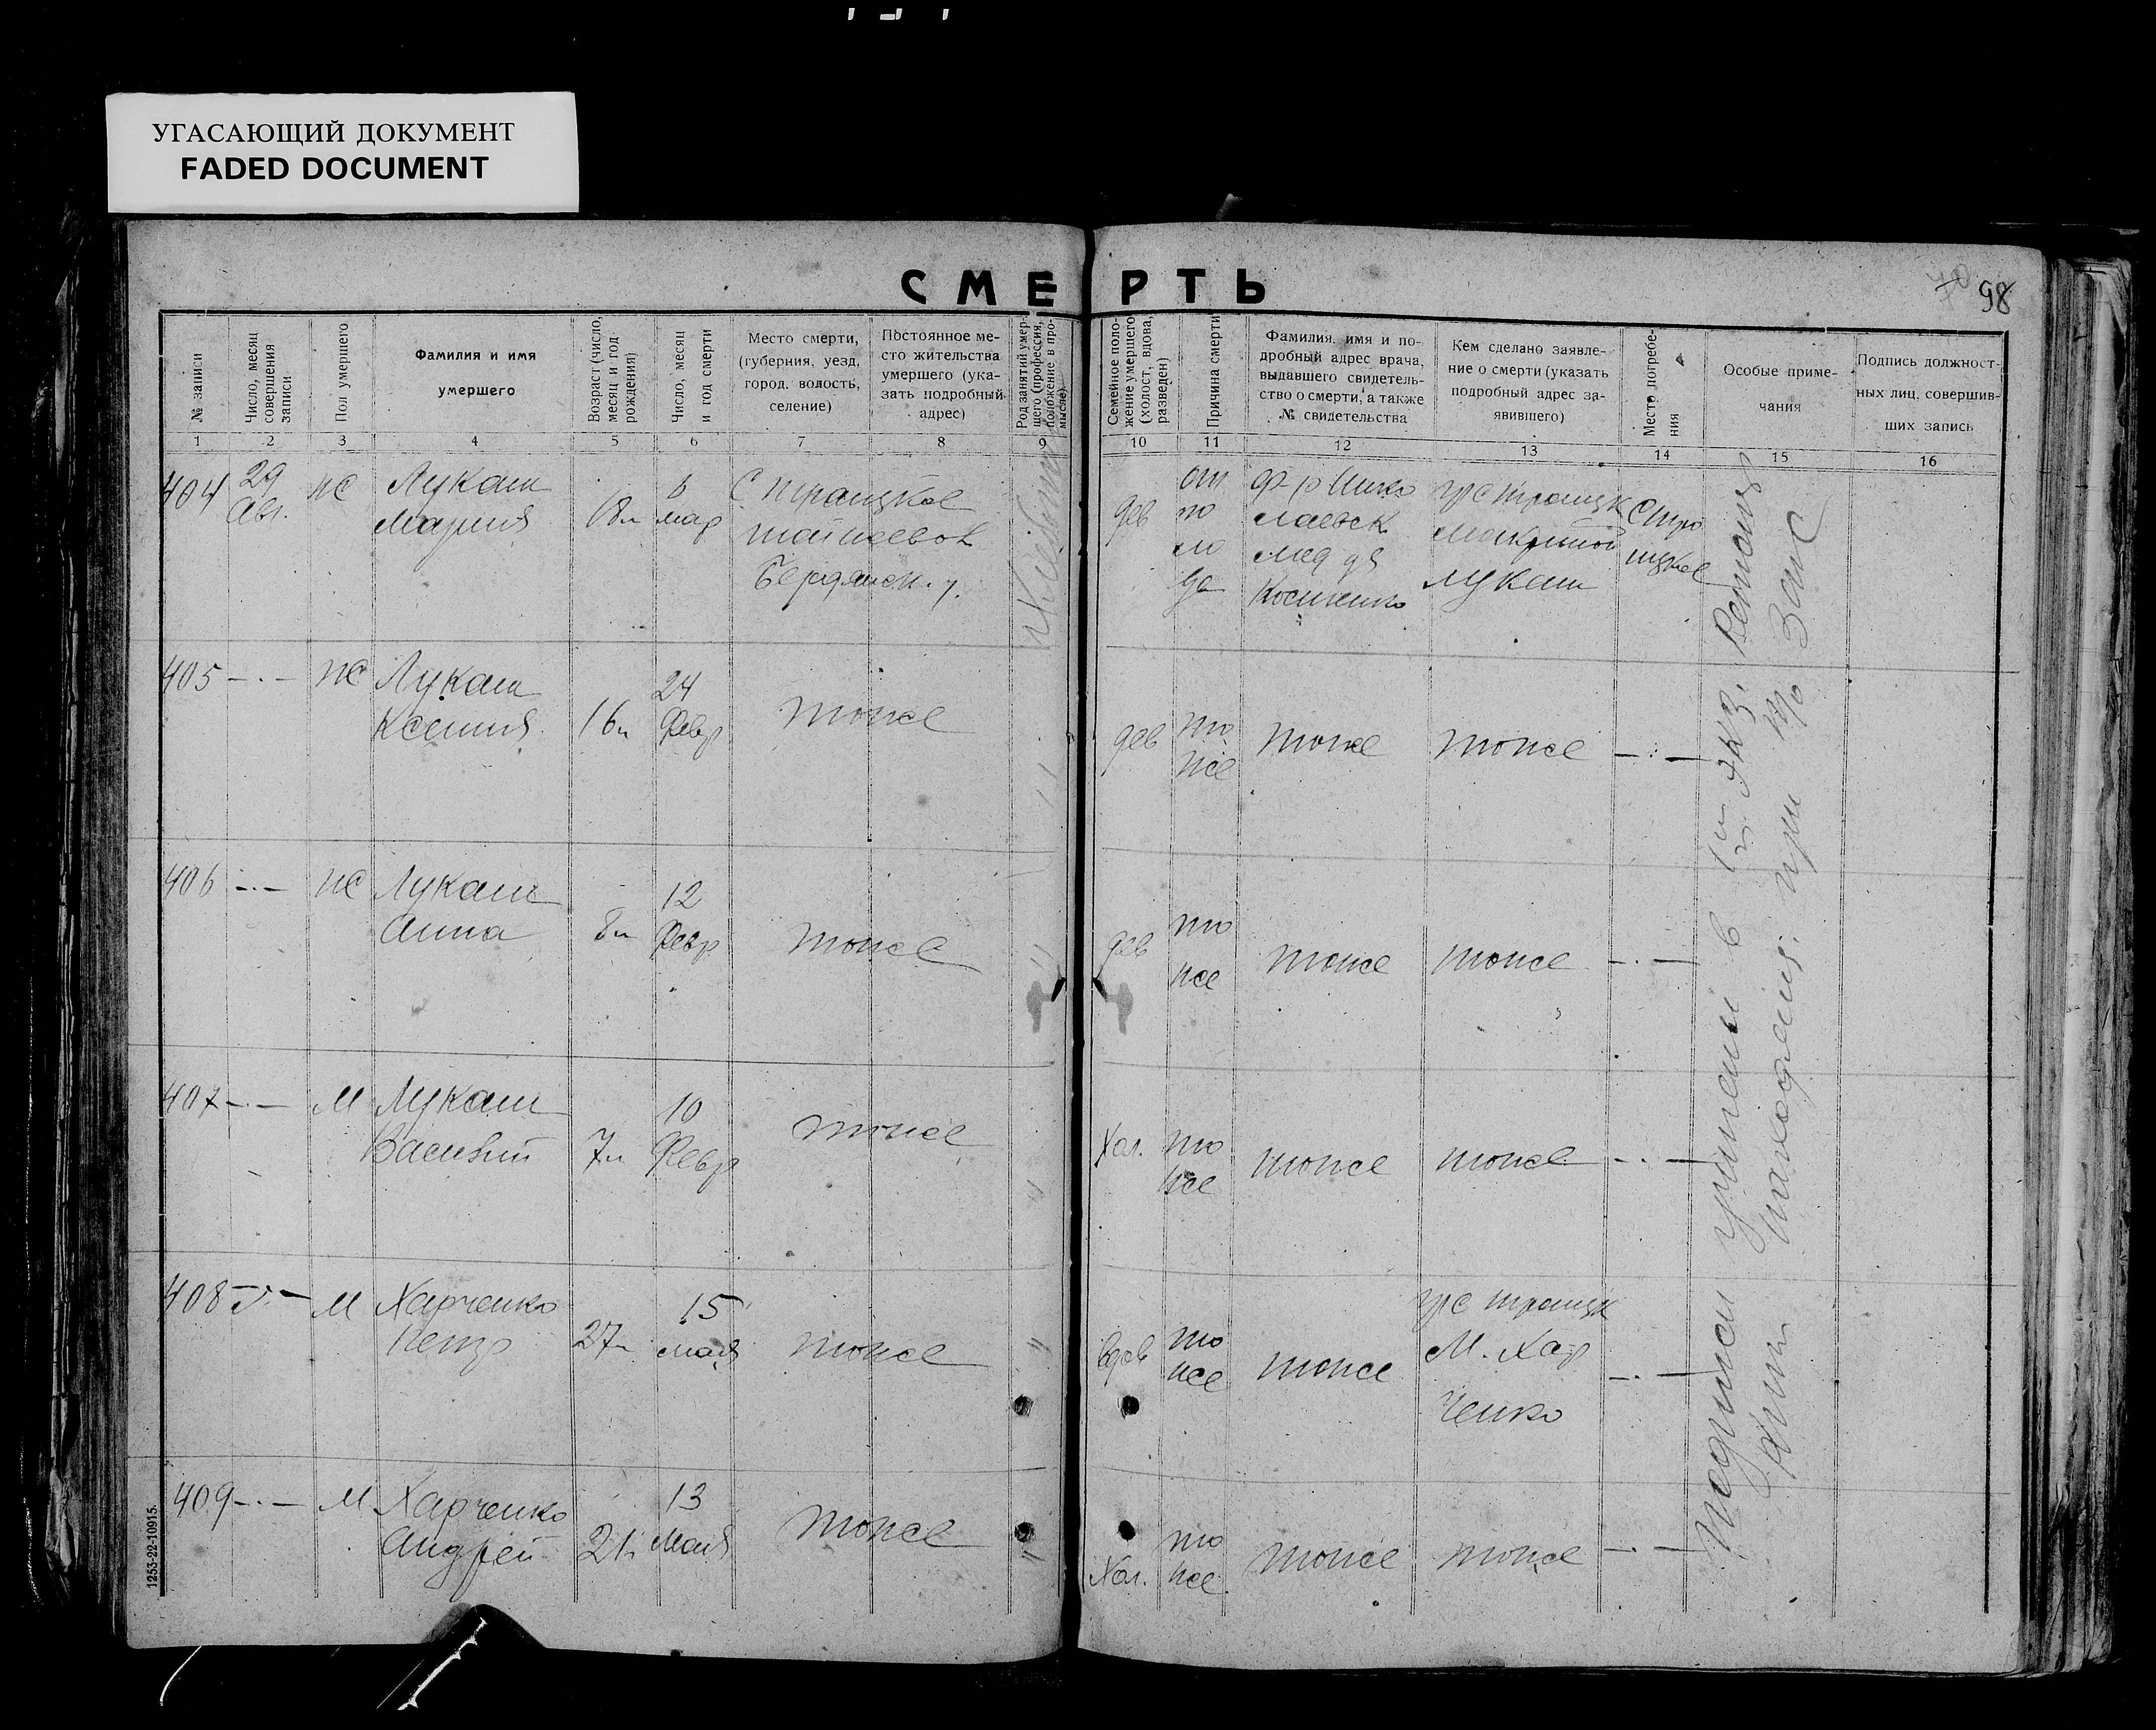 УГАСАЮЩИЙ ДОКУМЕНТ
FADED DOCUMENT
СМЕРТЬ
98
№ записи
Число, месяц
совершения
записи
Пол умершего
Фамилия и имя
умершего
Возраст (число,
месяц и год
рождения)
Число, месяц
и год смерти
Место смерти,
(губерния, уезд,
город, волость,
селение)
Постоянное ме-
сто жительства
умершего (ука-
зать подробный
адрес)
Род занятий умер-
шего (профессия,
положение в про-
мысле)
Семейное поло-
жение умершего
(холост, вдова,
разведен)
Причина смерти
Фамилия, имя и по-
дробный адрес врача,
выдавшего свидетель-
ство о смерти, а также
№ свидетельства
Кем сделано заявле-
ние о смерти (указать
подробный адрес за-
явившего)
Место погребе-
ния
Особые приме-
чания
Подпись должност-
ных лиц, совершив-
ших запись
1 2 3 4 5 6 7 8 9 10 11 12 13 14 15 16
404
29
Авг.
ж
Лукаш
Мария
18л
6
мар
С Троицкое
Бердянск. у.
дев
от
го
ло
да
Ф-р Нико
лаевск
мед уч
Косиенко
гр с Троицк
Лукаш
С Тро
ицкое
405 -·- ж
Лукаш
Ксения
16л
24
Февр
тоже
дев
то
же
тоже
тоже
-·-
406 -·- ж
Лукаш
Анна
8л
12
Февр
тоже
дев
то
же
тоже
тоже
-·-
407 -·- м
Лукаш
Василий
7л
10
Февр
тоже
Хол.
то
же
тоже
тоже
-·-
408 -·- м
Харченко
Петр
27л
15
мая
тоже
вдов
то
же
тоже
гр с Троицк
М. Хар
ченко
-·-
409 -·- м
Харченко
Андрей
21л
13
мая
тоже
Хол.
то
же
тоже
тоже
-·-
Подписи учинены в 1м экз.
находящ. при
Загс
1253-22-10915.